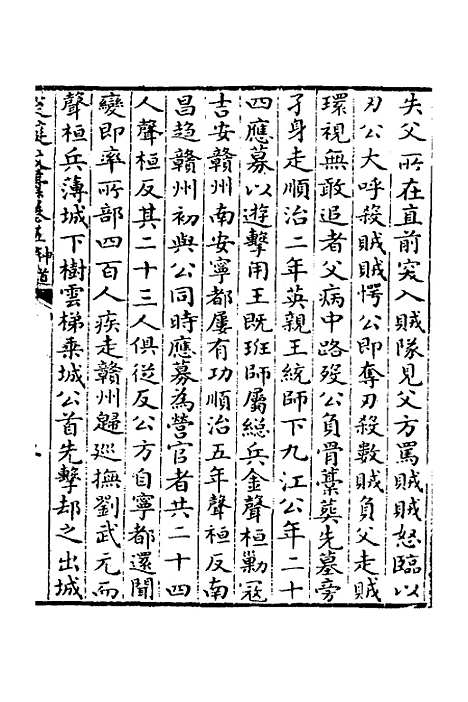 失父所在直前突入賊隊見父方罵賊賊怒臨以
刃公大呼殺賊賊愕公即奪刃殺數賊負父走賊
環視無敢追者父病中路歿公負骨藁葬先墓旁
孑身走順治二年英親王統師下九江公年二十
四應募以遊擊用王既班師屬總兵金聲桓勦寇
吉安贛州南安寧都屢有功順治五年聲桓反南
昌趋贛州初與公同時應募為營官者共二十四
人聲桓反其二十三人俱從反公方自寧都還聞
變即率所部四百人疾走贛州歸巡撫劉武元而
聲桓兵薄城下樹雲梯乘城公首先擊却之出城
神道